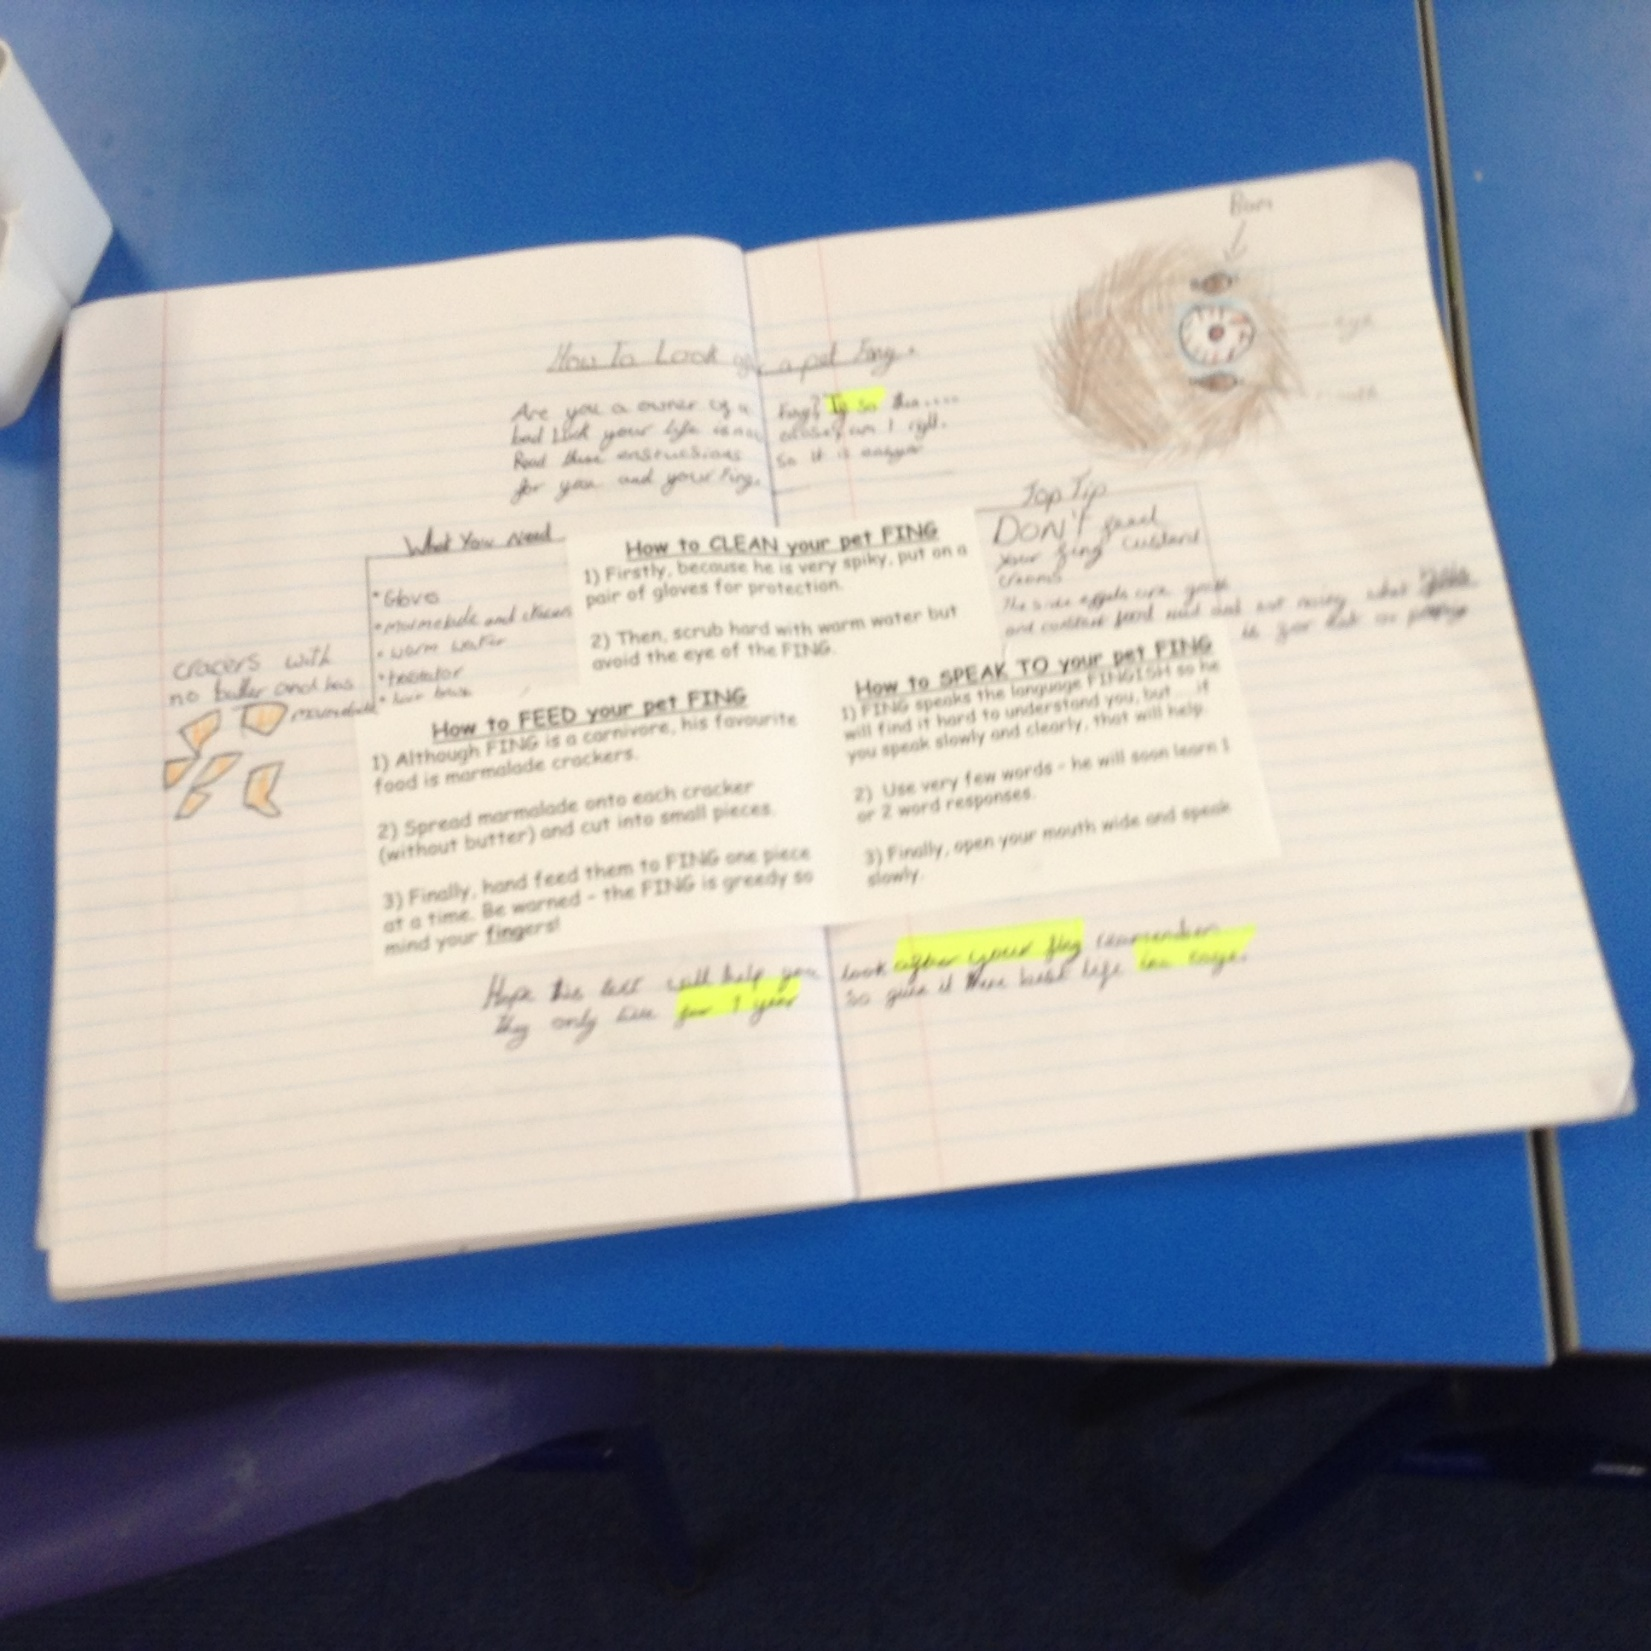 How To Look after a pet Fing.
Bum
Are you a owner of a Fing? If so then....
bad luck your life is now am I right.
Read these so it is easyer
for you and your Fing.
eye
What You Need
• Gloves
• marmelade and
• warm water
cracers with
no butter and has
marmelade
How to CLEAN your pet FING
1) Firstly, because he is very spiky, put on a
pair of gloves for protection.
2) Then, scrub hard with warm water but
avoid the eye of the FING.
Top Tip
DON'T feed
your fing custard
creams
The side effects are
and and not
How to FEED your pet FING
1) Although FING is a carnivore, his favourite
food is marmalade crackers.
2) Spread marmalade onto each cracker
(without butter) and cut into small pieces.
3) Finally, hand feed them to FING one piece
at a time. Be warned – the FING is greedy so
mind your fingers!
How to SPEAK TO your pet FING
1) FING speaks the language FINGISH so he
will find it hard to understand you, but.....if
you speak slowly and clearly, that will help.
2) Use very few words – he will soon learn 1
or 2 word responses.
3) Finally, open your mouth wide and speak
slowly.
Hope this text will help you look after your fing
they only live for 1 year so give it life